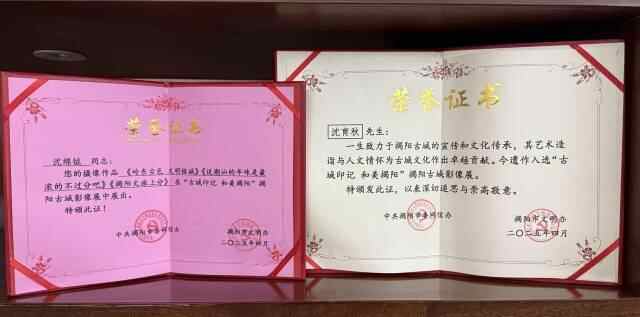 荣誉证书
沈绵铉 同志:
您的摄像作品《岭东古邑 文明榕城》《说潮汕的年味是最
浓的不过分吧》《揭阳文旅上分》在“古城印记 和美揭阳”揭
阳古城影像展中展出。
特颁此证!
中共揭阳市委网信办
揭阳市文明办
二〇二五年四月
荣誉证书
沈育秋 先生:
一生致力于揭阳古城的宣传和文化传承,其艺术造
诣与人文情怀为古城文化作出卓越贡献。今遗作入选“古
城印记 和美揭阳”揭阳古城影像展。
特颁发此证,以表深切追思与崇高敬意。
中共揭阳市委网信办
揭阳市文明办
二〇二五年四月